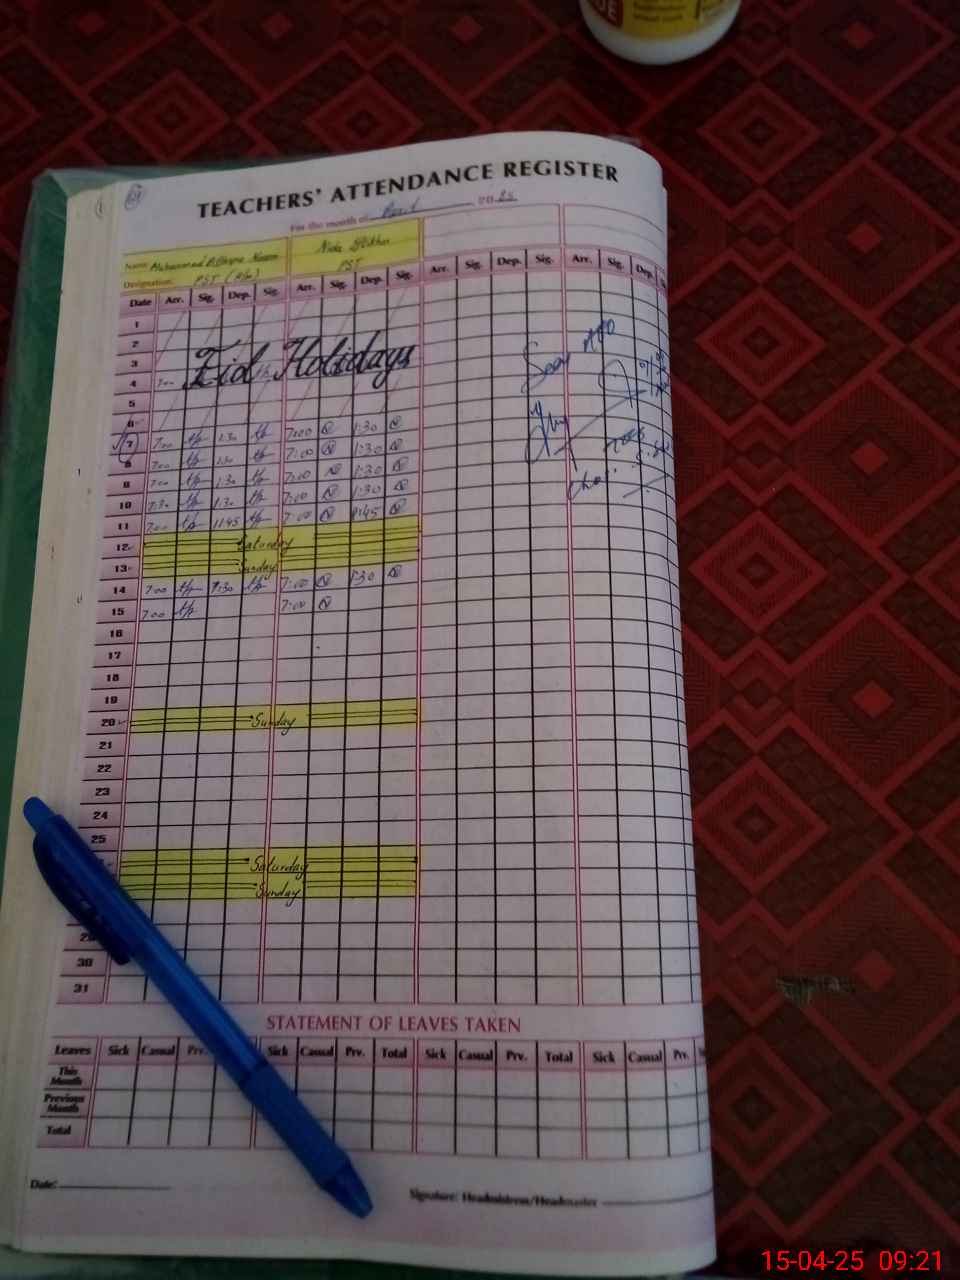 TEACHERS' ATTENDANCE REGISTER
For the month of April 20 25
Name: Muhammad
Nida
Designation: PST
PST
Date Arr. Sig. Dep. Sig. Arr. Sig. Dep. Sig. Arr. Sig. Dep. Sig. Arr. Sig. Dep.
1
2
3
Eid Holidays
4 7:00
5
6
7 7:00 1:30 7:00 1:30
8 7:00 1:30 7:00 1:30
9 7:00 1:30 7:00 1:30
10 7:30 1:30 7:00 1:30
11 7:00 11:45 7:00
12 Saturday
13 Sunday
14 7:00 1:30 7:00 1:30
15 7:00 7:00
16
17
18
19
20 Sunday
21
22
23
24
25
Saturday
Sunday
29
30
31
STATEMENT OF LEAVES TAKEN
Leaves Sick Casual Prv. Sick Casual Prv. Total Sick Casual Prv. Total Sick Casual Prv.
This Month
Previous Month
Total
Date:
Signature: Headmistress/Headmaster
15-04-25 09:21